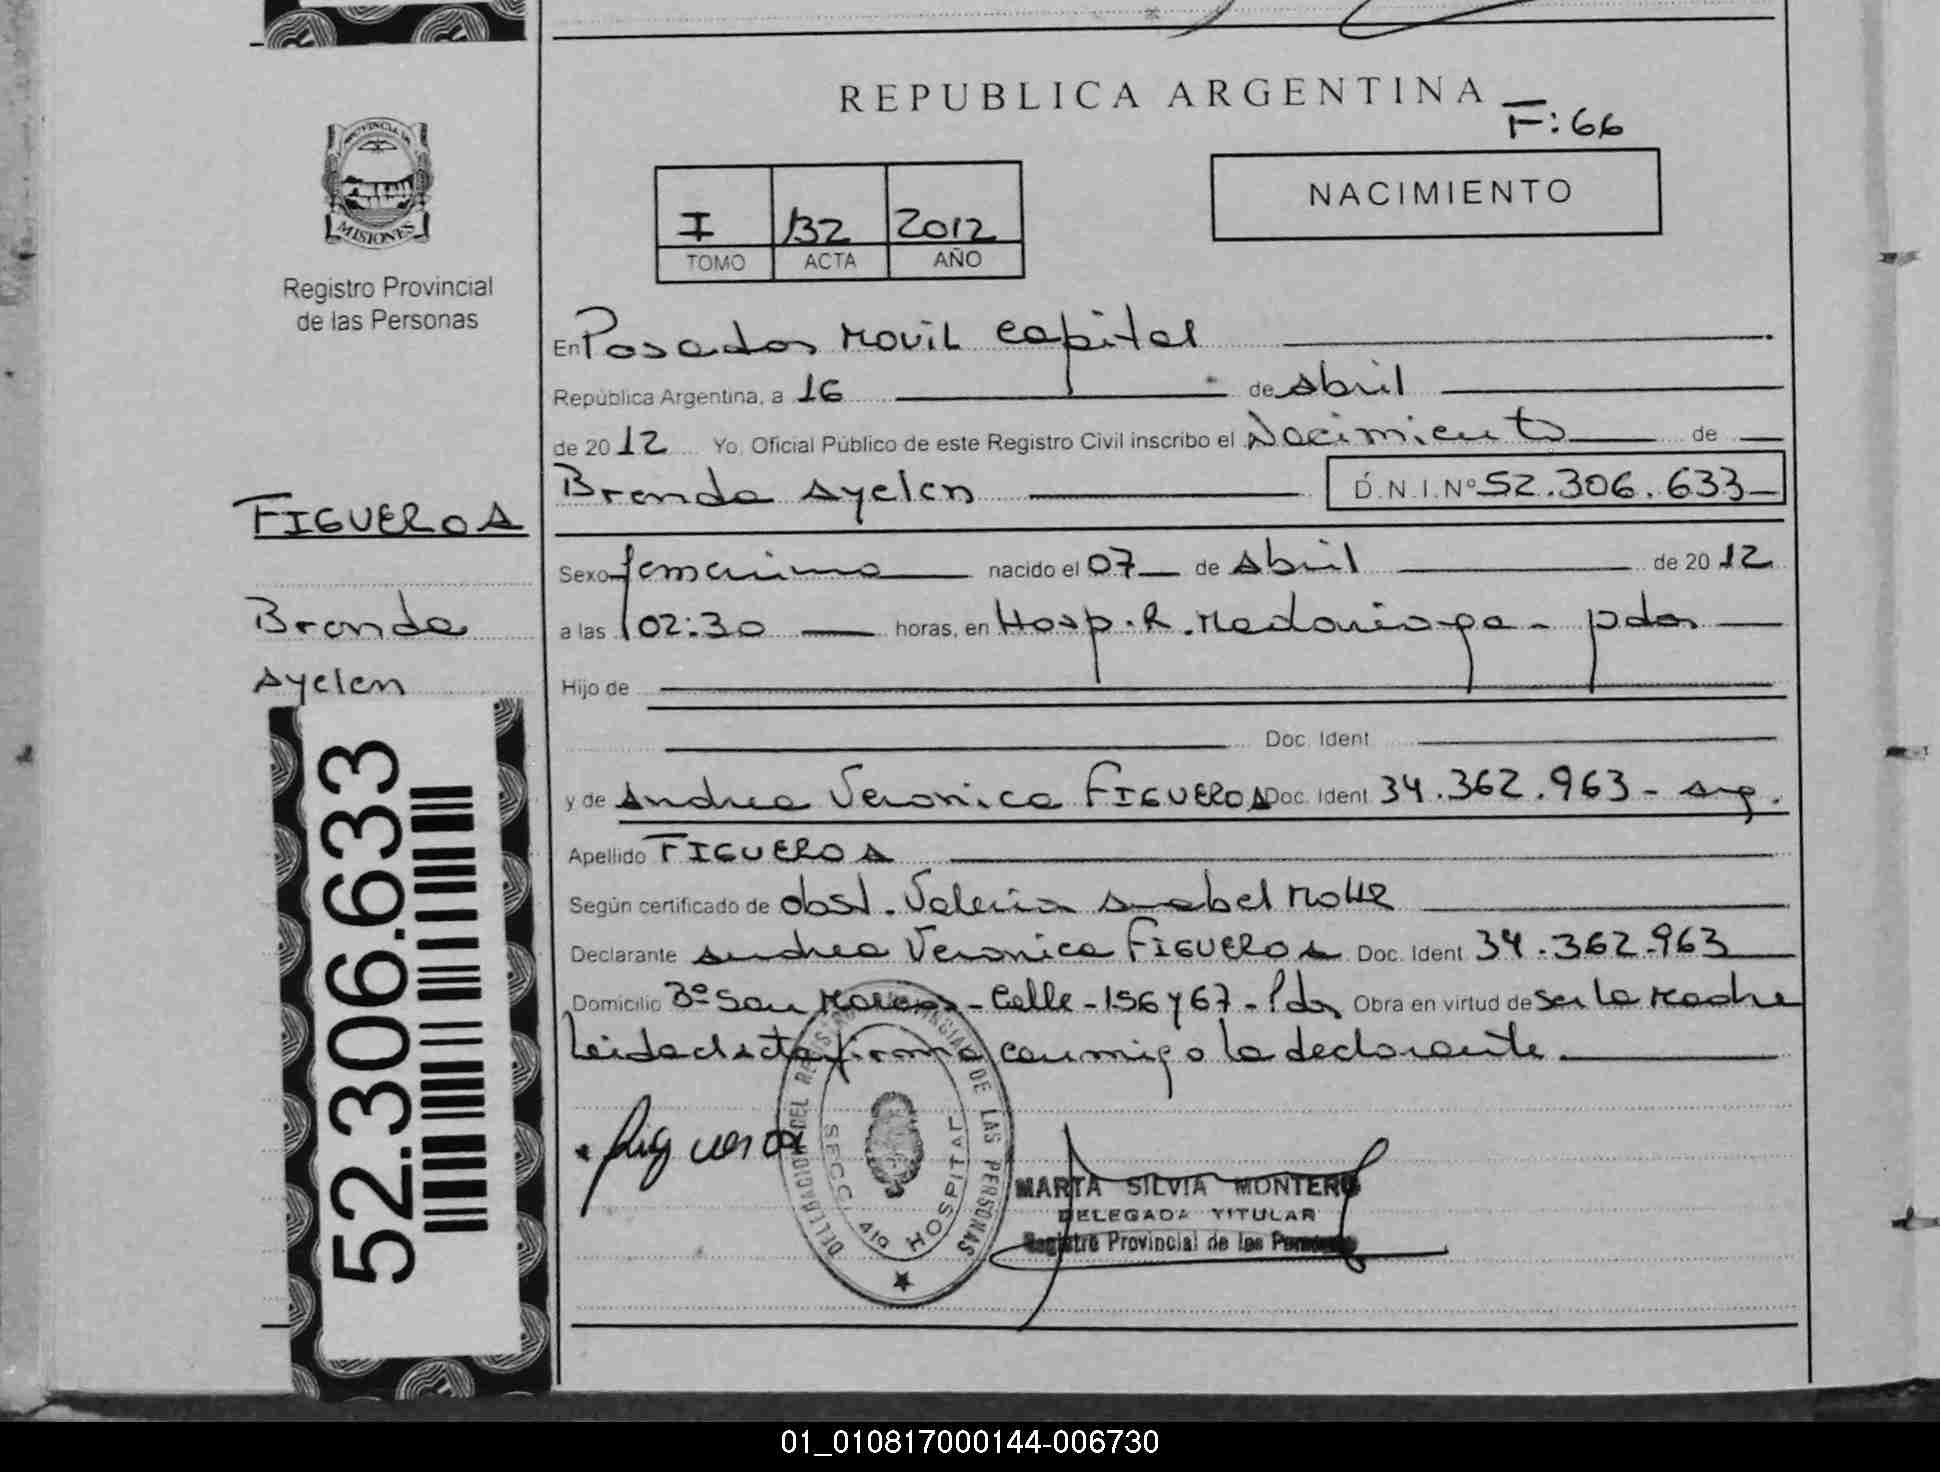 REPUBLICA ARGENTINA
F: 66
PROVINCIA DE
MISIONES
Registro Provincial
de las Personas
I 132 2012
TOMO ACTA AÑO
NACIMIENTO
En Posadas Movil Capital
República Argentina, a 16 de Abril
de 2012 Yo, Oficial Público de este Registro Civil inscribo el Nacimiento de
Brenda Ayelen D.N.I.Nº 52.306.633
FIGUEROA
Brenda
Ayelen
52.306.633
Sexo femenino nacido el 07 de Abril de 2012
a las 02:30 horas, en Hosp. R. Madariaga - pdas
Hijo de
Doc. Ident
y de Andrea Veronica FIGUEROA Doc. Ident 34.362.963 - arg.
Apellido FIGUEROA
Según certificado de obst. Valeria Anabel
Declarante Andrea Veronica FIGUEROA Doc. Ident 34.362.963
Domicilio Bº San Marcos - Calle - 156 y 67 - Pdas Obra en virtud de Ser la Madre
Leida el acta firma conmigo la declarante.
Figueroa
DELEGACION DEL REGISTRO PROVINCIAL DE LAS PERSONAS
SECC. HOSPITAL
MARTA SILVIA MONTERO
DELEGADA TITULAR
Registro Provincial de las Personas
01_010817000144-006730